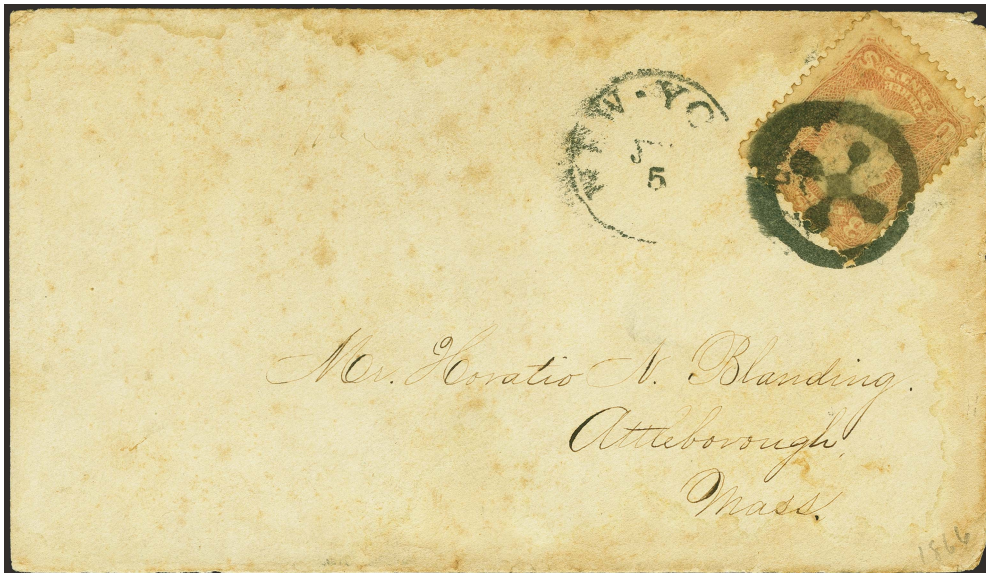 NEW · YO
5
Mr. Horatio N. Blanding.
Attleborough,
Mass.
1866